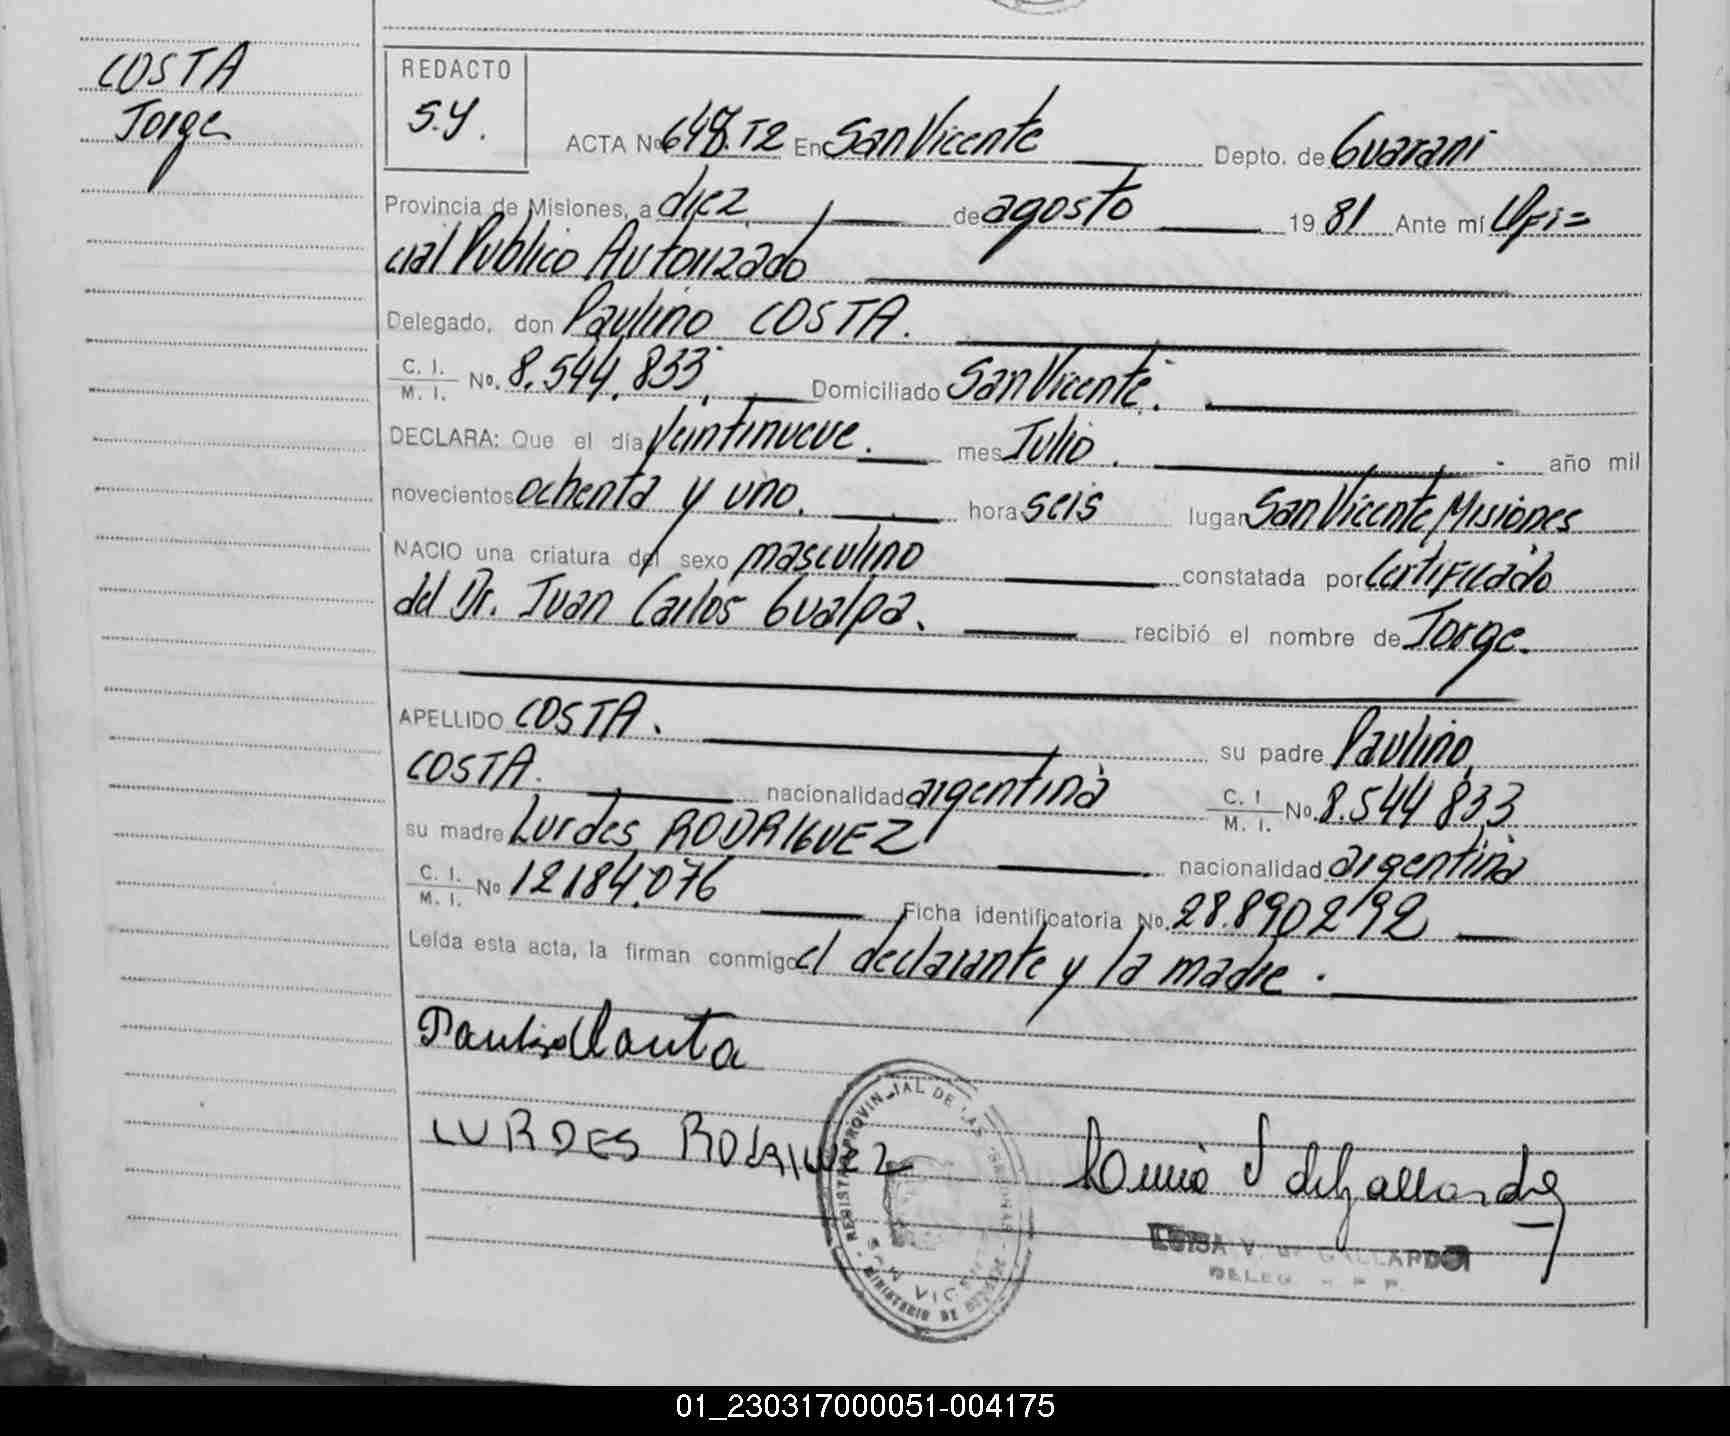 COSTA
Jorge
REDACTO
S.Y.
ACTA No 648.T2 En San Vicente Depto. de Guarani
Provincia de Misiones, a diez de agosto 1981 Ante mí Ofi=
cial Publico Autorizado
Delegado, don Paulino COSTA.
C. I. M. I. No. 8.544.833. Domiciliado San Vicente.
DECLARA: Que el día Veintinueve. mes Julio. año mil
novecientos ochenta y uno. hora seis lugar San Vicente, Misiones
NACIO una criatura del sexo masculino constatada por Certificado
del Dr. Juan Carlos Gualpa. recibió el nombre de Jorge.
APELLIDO COSTA. su padre Paulino
COSTA. nacionalidad argentina C. I. M. I. No. 8.544 833
su madre Lurdes RODRIGUEZ nacionalidad argentina
C. I. M. I. No 12.184.076 Ficha identificatoria No. 28.890292
Leída esta acta, la firman conmigo el declarante y la madre.
LURDES
REGISTRO PROVINCIAL DE LAS PERSONAS
SAN VICENTE
MINISTERIO DE
LUISA V. de GALLARDO
01_230317000051-004175